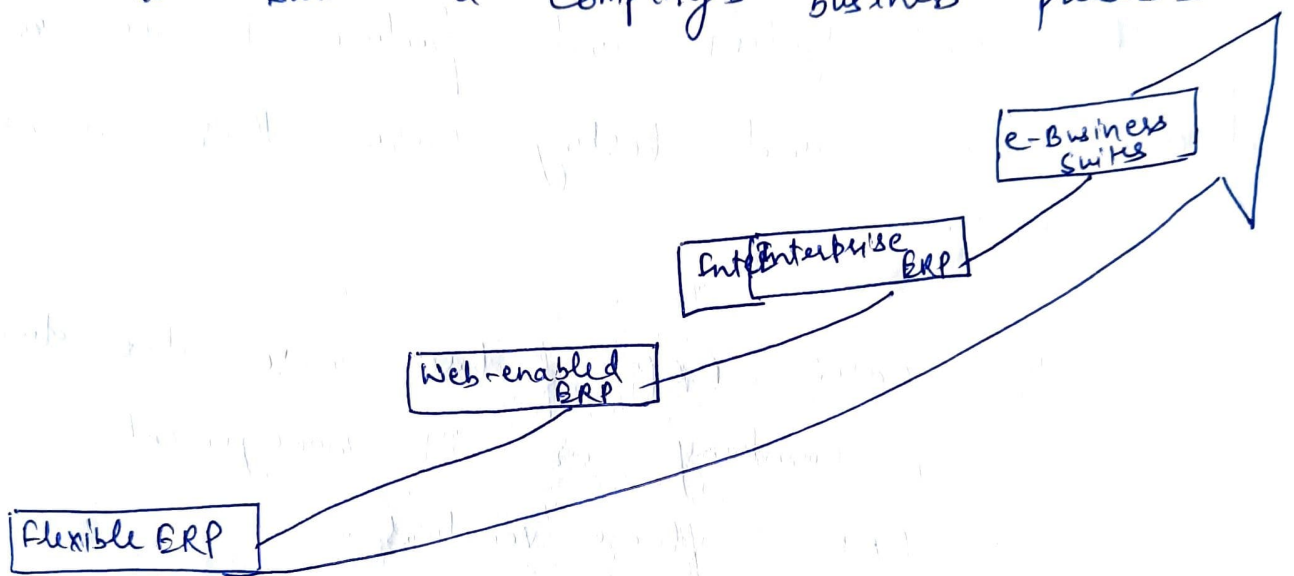 a company's business
e-Business
Suites
Inte Enterprise
ERP
Web-enabled
ERP
Flexible ERP